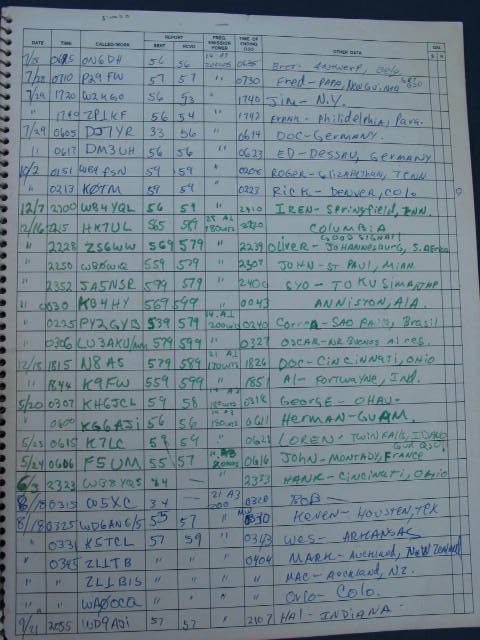 DATE TIME CALLED/WORK REPORT SENT RCVD FREQ. EMISSION POWER TIME OF ENDING QSO OTHER DATA QSL S R
ON6DH 56 56 0625 Bert - Antwerp,
7/28 0710 P29FW 57 57 " 0730 Fred - Papa, New Guinea
7/29 1720 W2KGO 56 53 " 1740 Jim - N.Y.
" 1740 ZP1KF 56 54 " 1742 Frank - Philidelphia, Para.
7/29 0605 DJ7YR 33 56 " 0614 DOC - GERMANY.
" 0617 DM3UH 56 56 " 0623 ED - DESSAU, GERMANY
10/2 0151 59 59 " ROGER - Elizabethton, TENN
" 0213 KØTM 59 59 " 0223 RICK - DENVER, COLO
12/7 2300 WB4YQL 56 59 " 2310 IREN - Springfield, TENN.
12/16 2215 HK7UL 565 569 21 A1 180WTS COLUMBIA GOOD SIGNAL
" 2228 ZS6WW 569 579 " 2239 Oliver - JOHANNESBURG, S. AFRICA
" 2250 559 579 " 2307 JOHN - ST PAUL, MINN
" 2352 JA5NSR 579 579 " 2400 SYO - TOKUSIMA
" 0030 KB4HY 569 599 " 0043 ANNISTON, ALA.
" 0225 PY2GYB 539 579 14 A1 200WTS 0240 SAO PAULO, Brasil
" 0306 579 599 " 0327 OSCAR - NR BUENOS Aires.
12/18 1815 N8AS 579 589 21 A1 1826 DOC - CINCINNATI, OHIO
" 1846 K9FW 559 599 " 1851 Al - Fortwayne, Ind.
5/20 0307 KH6JCL 59 58 0318 GEORGE - OHAU -
" 0600 KG6AJi 56 56 0611 HERMAN - GUAM.
5/23 0615 K7LC 59 59 " 0621 LOREN - TWIN FALLS, IDAHO
5/24 0606 F5UM 55 57 0616 JOHN - MONTADY, FRANCE
2323 WB8YQS — " 2333 HANK - Cincinati, Ohio
8/18 0315 W5XC 34 — 21 A3 200 0320 BOB -
8/18 0325 WD6ANG/5 55 57 " 0330 KEVEN - HOUSTEN, TEX
" 0331 K5TCL 57 59 " 0343 WES - ARKANSAS
" 0345 ZL1TB " " " 0404 MARK - Auckland, New Zealand
" " ZL1BIS " " " MAC - Auckland, NZ.
" " WAØOCQ " " " Orlo - Colo.
9/21 2055 WD9AJi 57 57 " 2107 HAL - INDIANA -